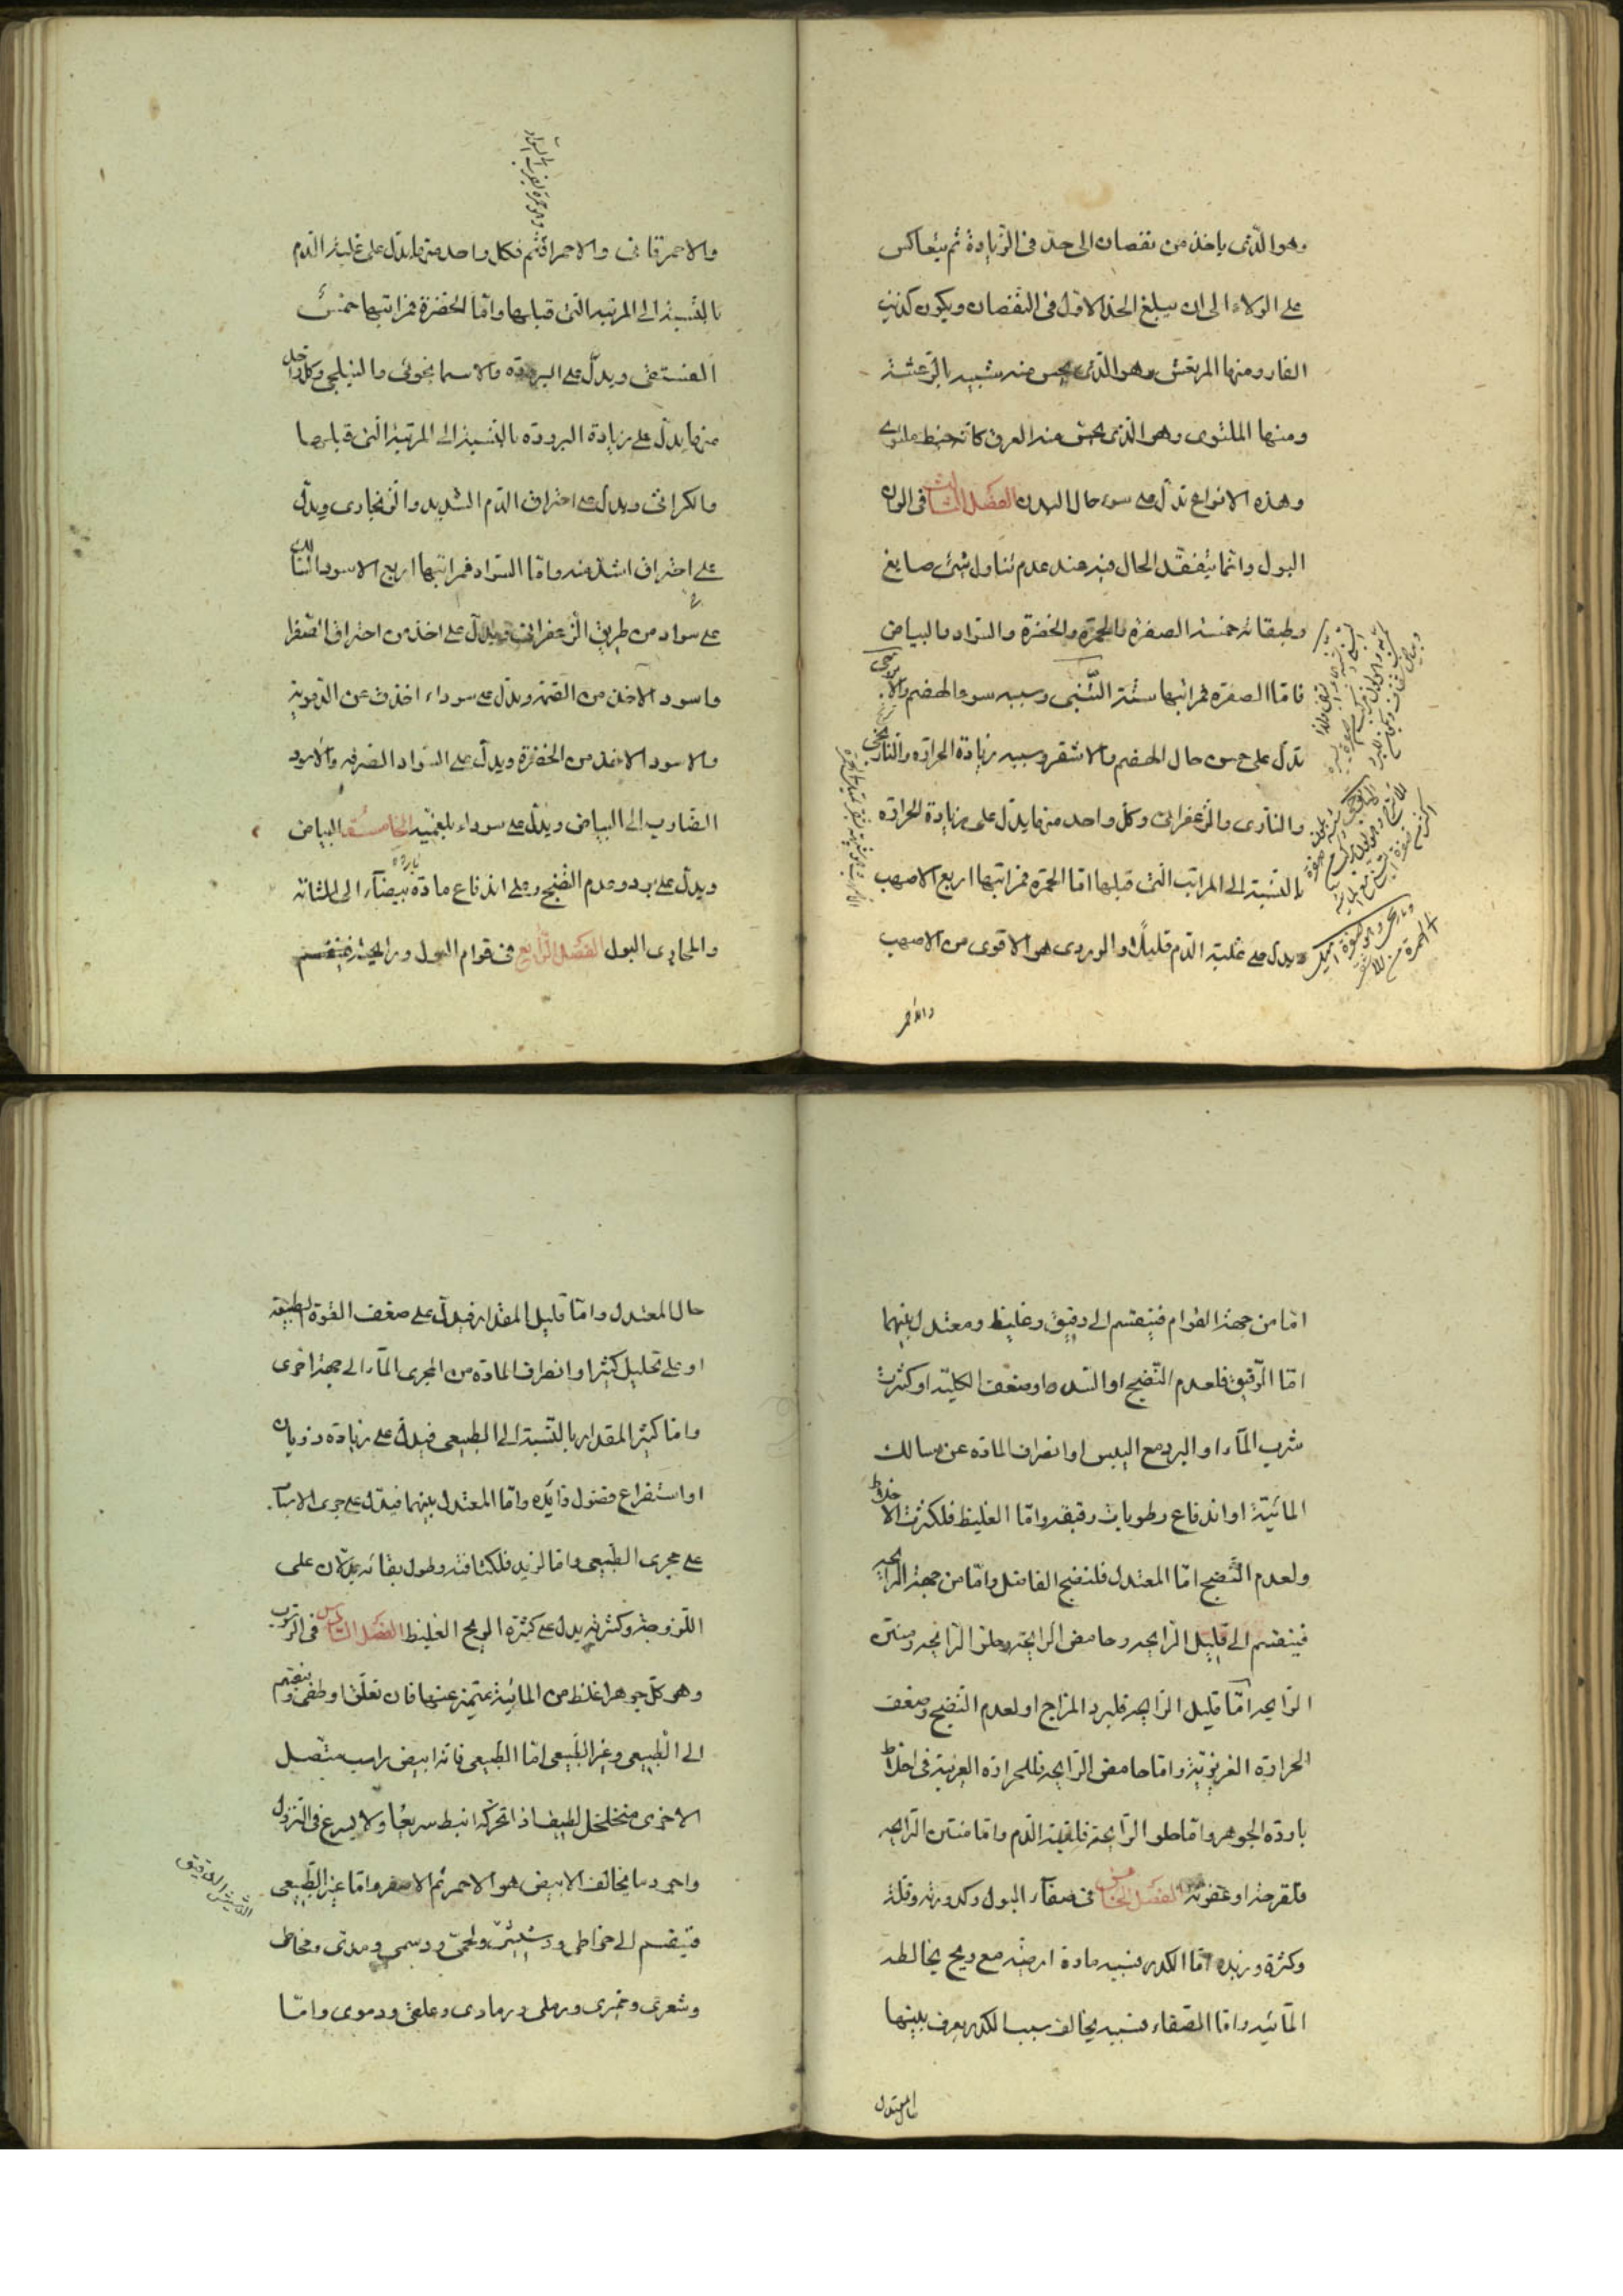 وهو الذى ياخذ من نقصان الى حد فى الزيادة ثم يتعاكس
على الولاء الى ان يبلغ الحد الاول فى النقصان ويكون كذنب
الفار ومنها المرتعش وهو الذى يحس منه شبيه بالرعشة
ومنها الملتوى وهو الذى يحس منه العرق كانه خيط ملتوى
وهذه الانواع تدل على سوء حال البدن الفصل الثالث فى الوان
البول وانما يتفقد الحال فيه عند عدم تناول شئ صابغ
وطبقاته خمسة الصفرة والحمرة والخضرة والسواد والبياض
فاما الصفرة فمراتبها ستة التبنى وسببه سوء الهضم والاترجى
يدل على حسن حال الهضم والاشقر وسببه زيادة الحرارة والنارنجى
والنارى والزعفرانى وكل واحد منها يدل على زيادة الحرارة
بالنسبة الى المراتب التى قبلها اما الحمرة فمراتبها اربع الاصهب
ويدل على غلبة الدم قليلا والوردى هو الاقوى من الاصهب
والاحمر
والاحمر قانى والاحمر اقتم فكل واحد منها يدل على غلبة الدم
بالنسبة الى المرتبة التى قبلها واما الخضرة فمراتبها خمس
الفستقى ويدل على البرودة والاسمانجونى والنيلجى وكل واحد
منها يدل على زيادة البرودة بالنسبة الى المرتبة التى قبلها
والكراثى ويدل على احتراق الدم الشديد والزنجارى ويدل
على احتراق اشد منه واما السواد فمراتبها اربع الاسود السالك
على سواد من طريق الزعفرانى ويدل على اخذ من احتراق الصفرا
واسود الاخذ من القتمة ويدل على سوداء اخذت عن الدموية
والاسود الاخذ من الخضرة ويدل على السواد الصرفه والاسود
الضارب الى البياض ويدل على سوداء بلغمية الخامسة البياض
ويدل على برد وعدم النضج وعلى اندفاع مادة باردة بيضآء الى المثانة
والمجارى البول الفصل الرابع فى قوام البول ورايحته فينقسم
اما من جهة القوام فينقسم الى رقيق وغليظ ومعتدل بينهما
اما الرقيق فلعدم النضج او السدد او ضعف الكلية او كثرت
شرب المآء او البرد مع اليبس او انصراف المادة عن مسالك
المائية او اندفاع رطوبات رقيقه واما الغليظ فلكثرت الاخلاط
ولعدم النضج اما المعتدل فلنضج الفاضل واما من جهة الرايحه
فينقسم الى قليل الرايحه وحامض الرايحة وحلو الرايحه ومنتن
الرايحه اما قليل الرايحه فلبرد المزاج او لعدم النضج وضعف
الحرارة الغريزية واما حامض الرايحة فللحرارة الغريبة فى اخلاط
باردة الجوهر واما حلو الرايحة فلغلبة الدم واما منتن الرايحه
فلقرحة او عفونة الفصل الخامس فى صفآء البول وكدورته وقلته
وكثرة وزبده اما الكدر فسببه مادة ارضية مع ريح يخالطه
المآئيه واما الصفاء فسببه يخالف سبب الكدر يعرف بينها
حال المعتدل
حال المعتدل واما قليل المقدار فيدل على ضعف القوة الطبيعة
او على تحليل كثير او انصراف المادة من المجرى المآء الى جهة اخرى
واما كثير المقدار بالنسبة الى الطبيعى فيدل على زيادة ذوبان
او استفراغ فضول زايدة واما المعتدل بينهما فيدل على جرى الاسباب
على مجرى الطبيعى واما الزبد فلكثافته وطول بقائه يدلان على
اللزوجة وكثرته يدل على كثرة الريح الغليظ الفصل السادس فى الرسوب
وهو كل جوهر اغلظ من المائية يتميز عنها فان تعلق او طفى وينقسم
الى الطبيعى وغير الطبيعى اما الطبيعى فانه ابيض راسب متصل
الاجزى متخلخل لطيف اذا تحركه انبط سريعا ولا يسرع فى النزول
واجود ما يخالف الابيض هو الاحمر ثم الاصفر واما غير الطبيعى
فينقسم الى خراطى ودشيشى ولحمى ودسمى ومدتى ومخاطى
وشعرى وخميرى ورملى ورمادى وعلقى ودموى واما
الدشيش الدقيق